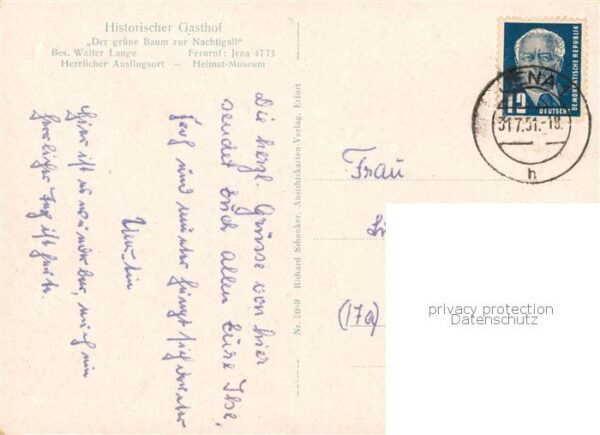 Historischer Gasthof
„Der grüne Baum zur Nachtigall“
Bes. Walter Lange Fernruf: Jena 4773
Herrlicher Ausflugsort — Heimat-Museum
Die herzl. Grüsse von hier
sendet Euch allen Eure Ilse,
froh und munter
Hier ist es wunderbar, auch ein
herrlicher Tag ist heute.
Nr. 2089 Richard Schenker, Ansichtskarten-Verlag, Erfurt
DEUTSCHE
DEMOKRATISCHE REPUBLIK
12
JENA
31.7.51.-18
h
Frau
(17a)
privacy protection
Datenschutz